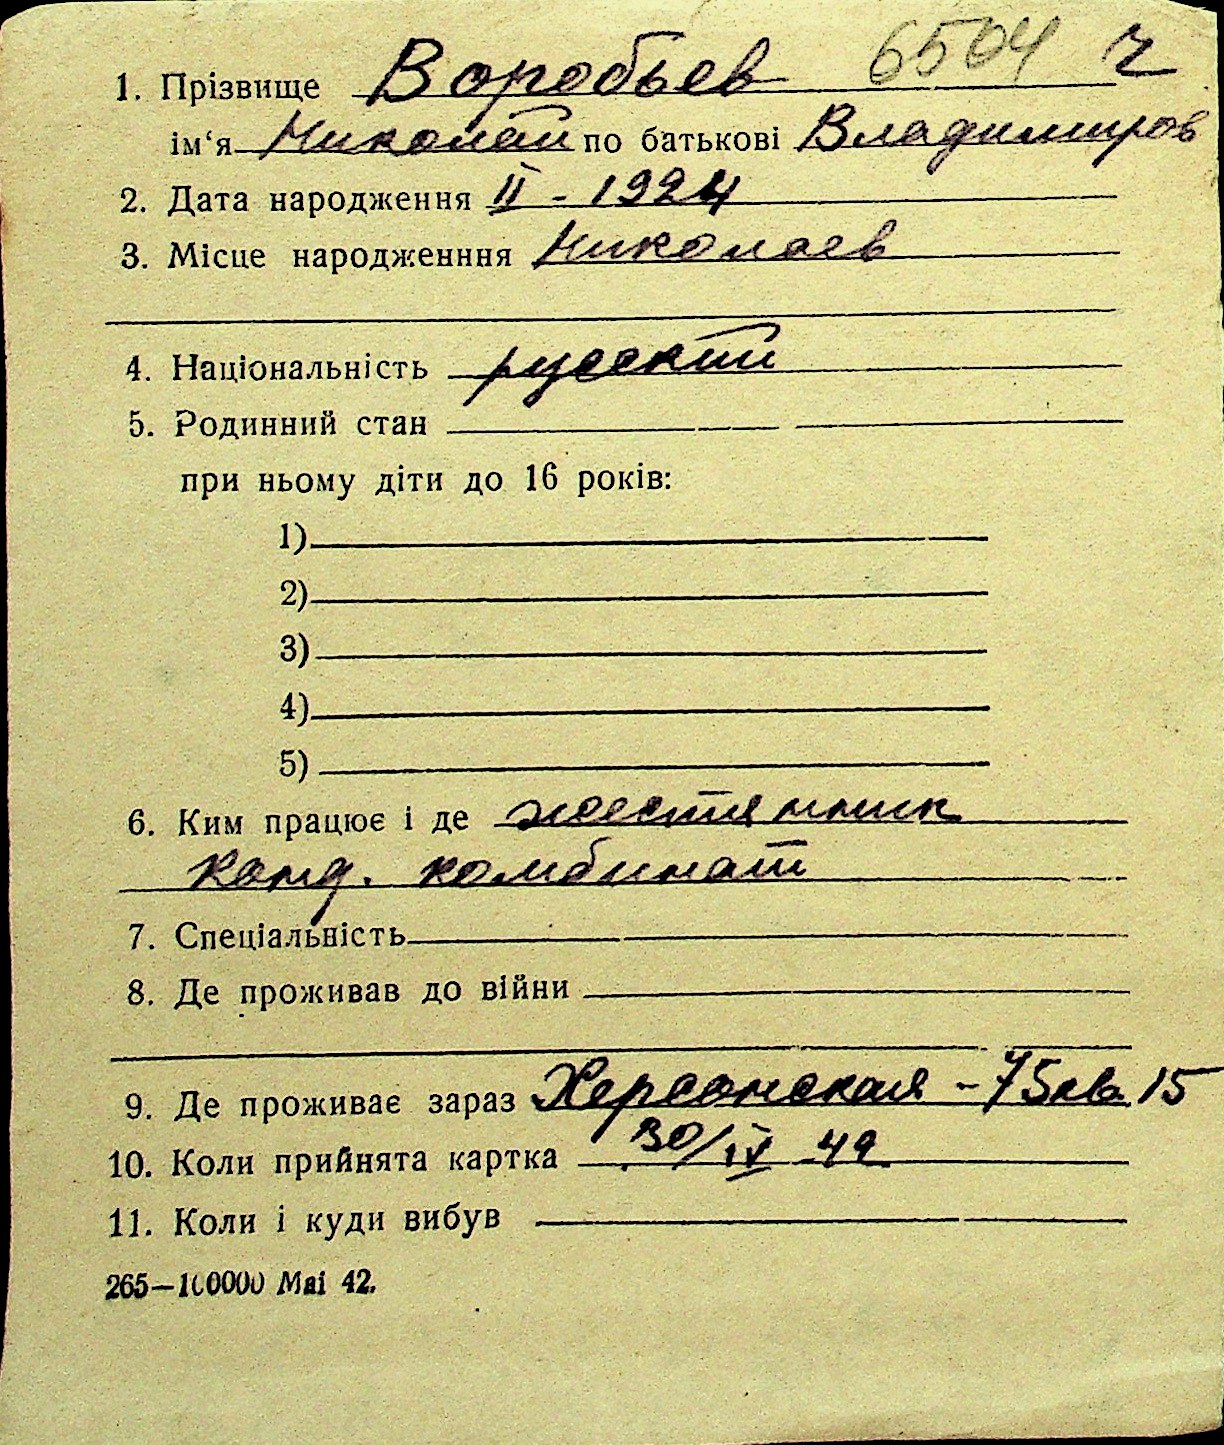 1. Прізвище Воробьев 6504 ч
ім‘я Николай по батькові Владимиров
2. Дата народження II - 1924
3. Місце народженння Николаев
4. Національність русский
5. Родинний стан
при ньому діти до 16 років:
1)
2)
3)
4)
5)
6. Ким працює і де жестянник
конд. комбинат
7. Спеціальність
8. Де проживав до війни
9. Де проживає зараз Херсонская - 75 кв. 15
10. Коли прийнята картка 30/IV 42
11. Коли і куди вибув
265—100000 Mai 42.